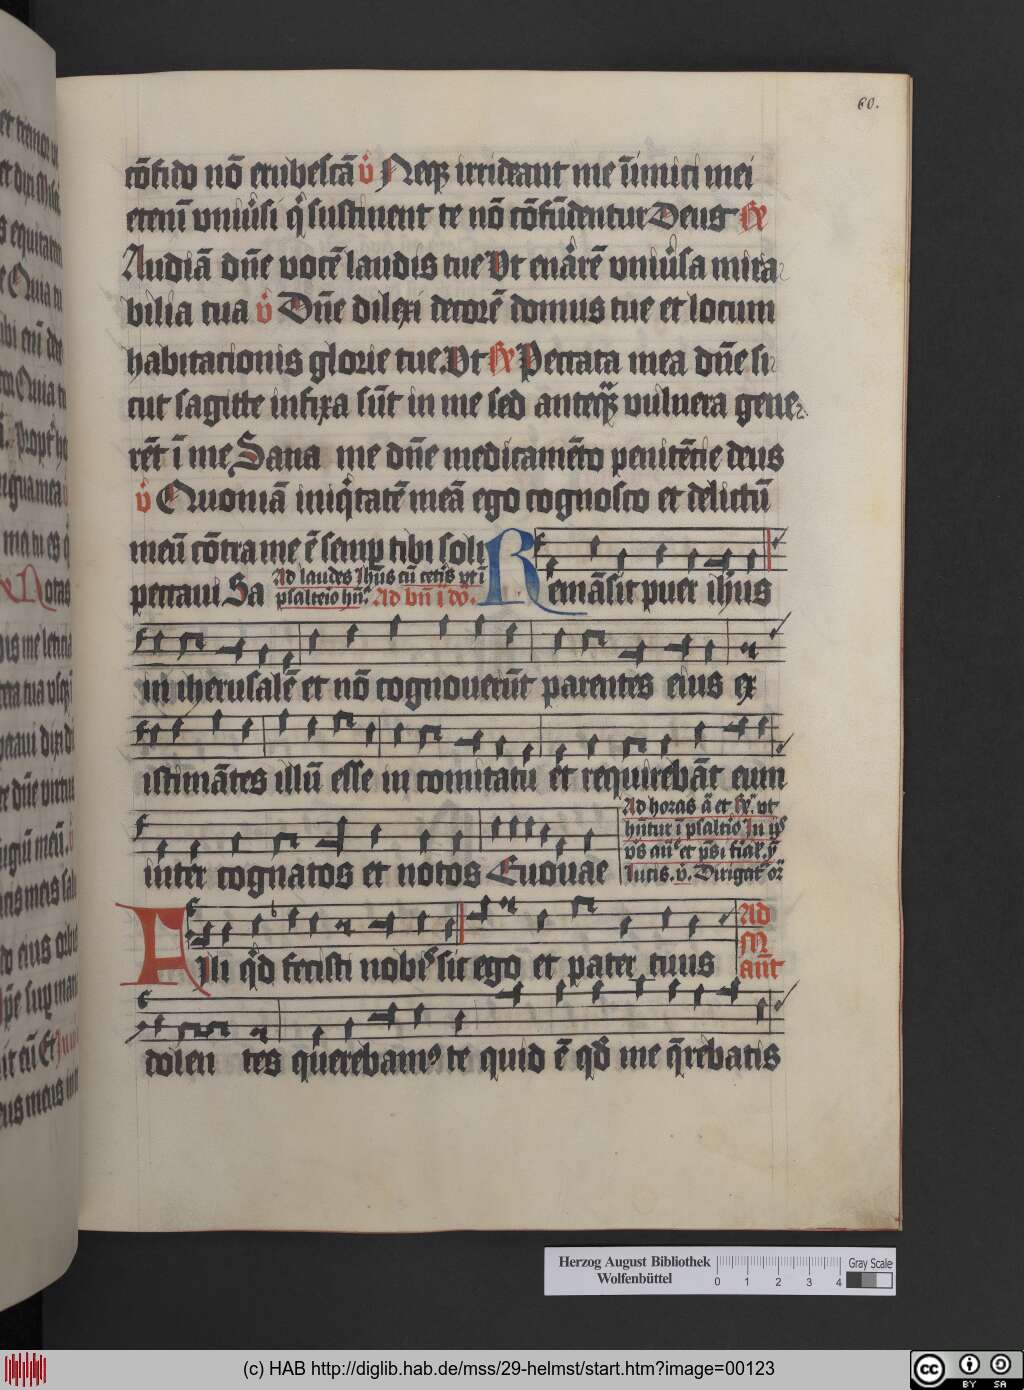 60.
cōfido nō erubescā v̇ Neq irrideant me īimici mei
etenī vniūsi q̇ sustinent te nō cōfūdentur Deus ℟
Audiā dn̄e vocē laudis tue Vt enārē vniūsa mira
bilia tua v̇ Dn̄e dilexi decorē domus tue et locum
habitationis glorie tue. Vt ℟ Peccata mea dn̄e si
cut sagitte infixa sūt in me sed anteq̄ vulnera gene
rēt ī me Sana me dn̄e medicamēto penitētie deus
v̇ Quoniā iniq̇tatē meā ego cognosco et delictū
meū cōtra me ē semp tibi soli
peccaui Sa
Ad laudes Ihūs cū cetīs vt ī
psalteio hn̄ Ad bn̄ ī dō.
Remāsit puer ihūs
in iherusalē et nō cognouerūt parentes eius ex
istimātes illū esse in comitatu et requirebāt eum
inter cognatos et notos Euouae
Ad horas ā et ℟ vt
hn̄tur ī psalteio In
lucis. v̇. Dirigat
Fili qd fecisti nobis sic ego et pater tuus
Ad
M
anīt
dolen tes querebamꝰ te quid ē qd me q̄rebatis
Herzog August Bibliothek
Wolfenbüttel
0 1 2 3 4
Gray Scale
(c) HAB http://diglib.hab.de/mss/29-helmst/start.htm?image=00123
cc BY SA